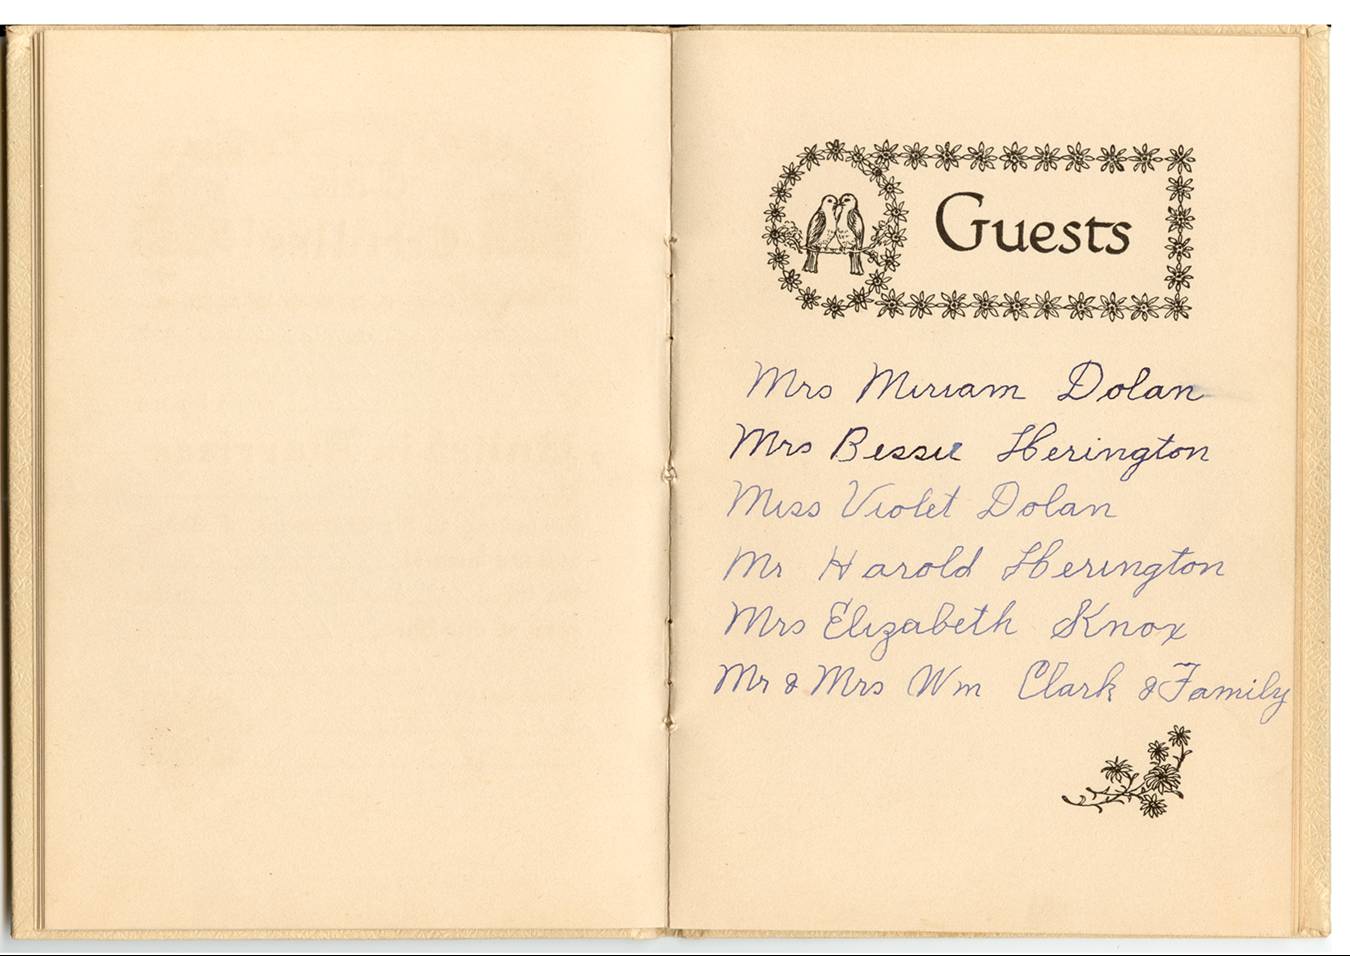 Guests
Mrs Miriam Dolan
Mrs Bessie Herington
Miss Violet Dolan
Mr Harold Herington
Mrs Elizabeth Knox
Mr & Mrs Wm Clark & Family